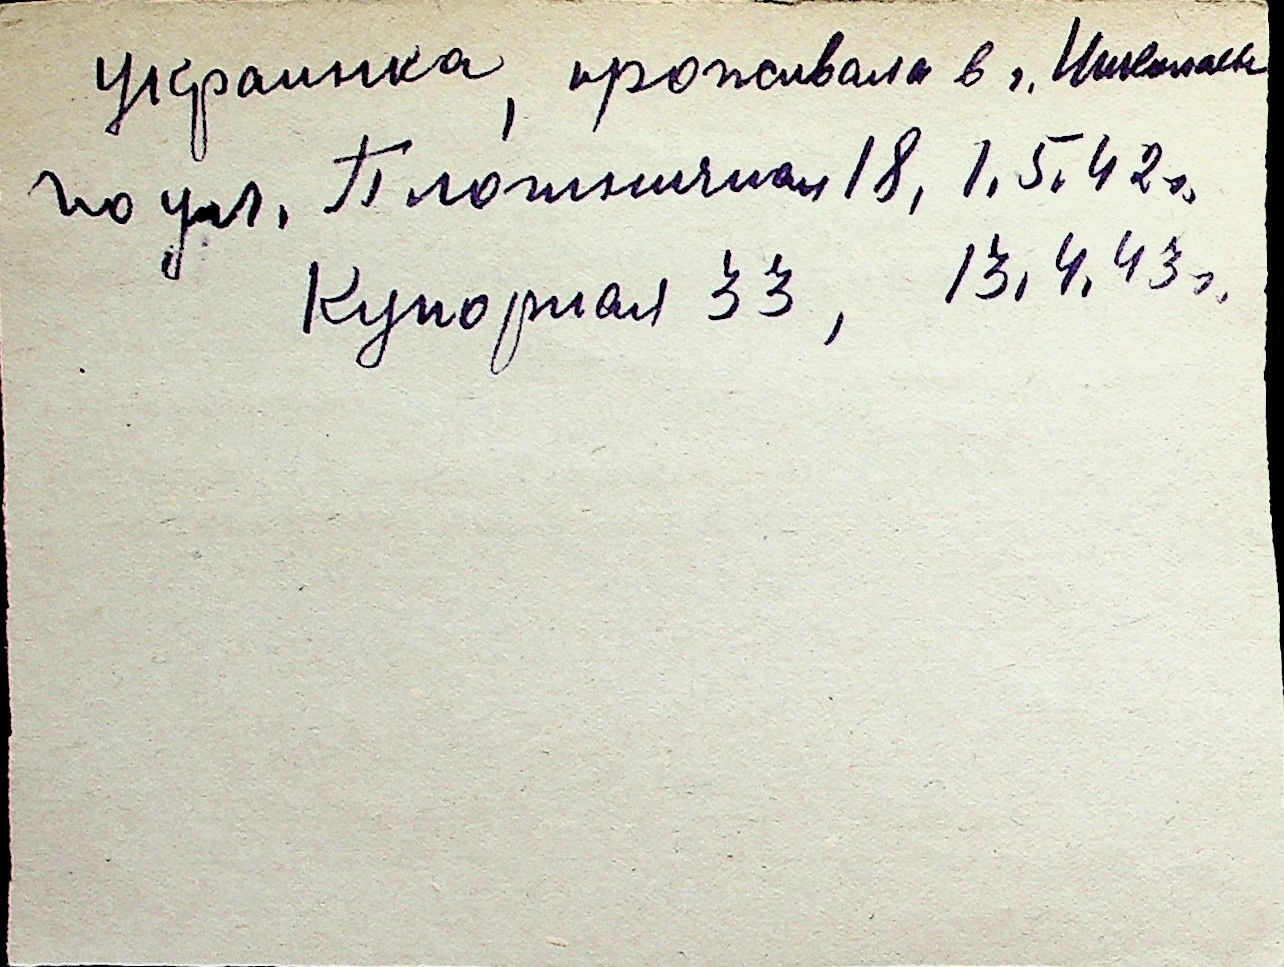 украинка, проживала в г. Николаеве
по ул. Плотничная 18, 1.5.42 г.
Купорная 33, 13.4.43 г.